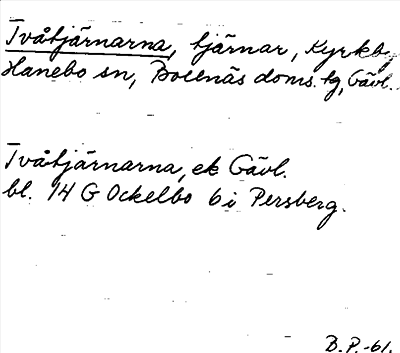 Tvåtjärnarna, tjärnar, Kyrkby
Hanebo sn, Bollnäs doms. tg, Gävl.
Tvåtjärnarna, ek Gävl.
bl. 14 G Ockelbo 6 i Persberg.
B.P.-61.